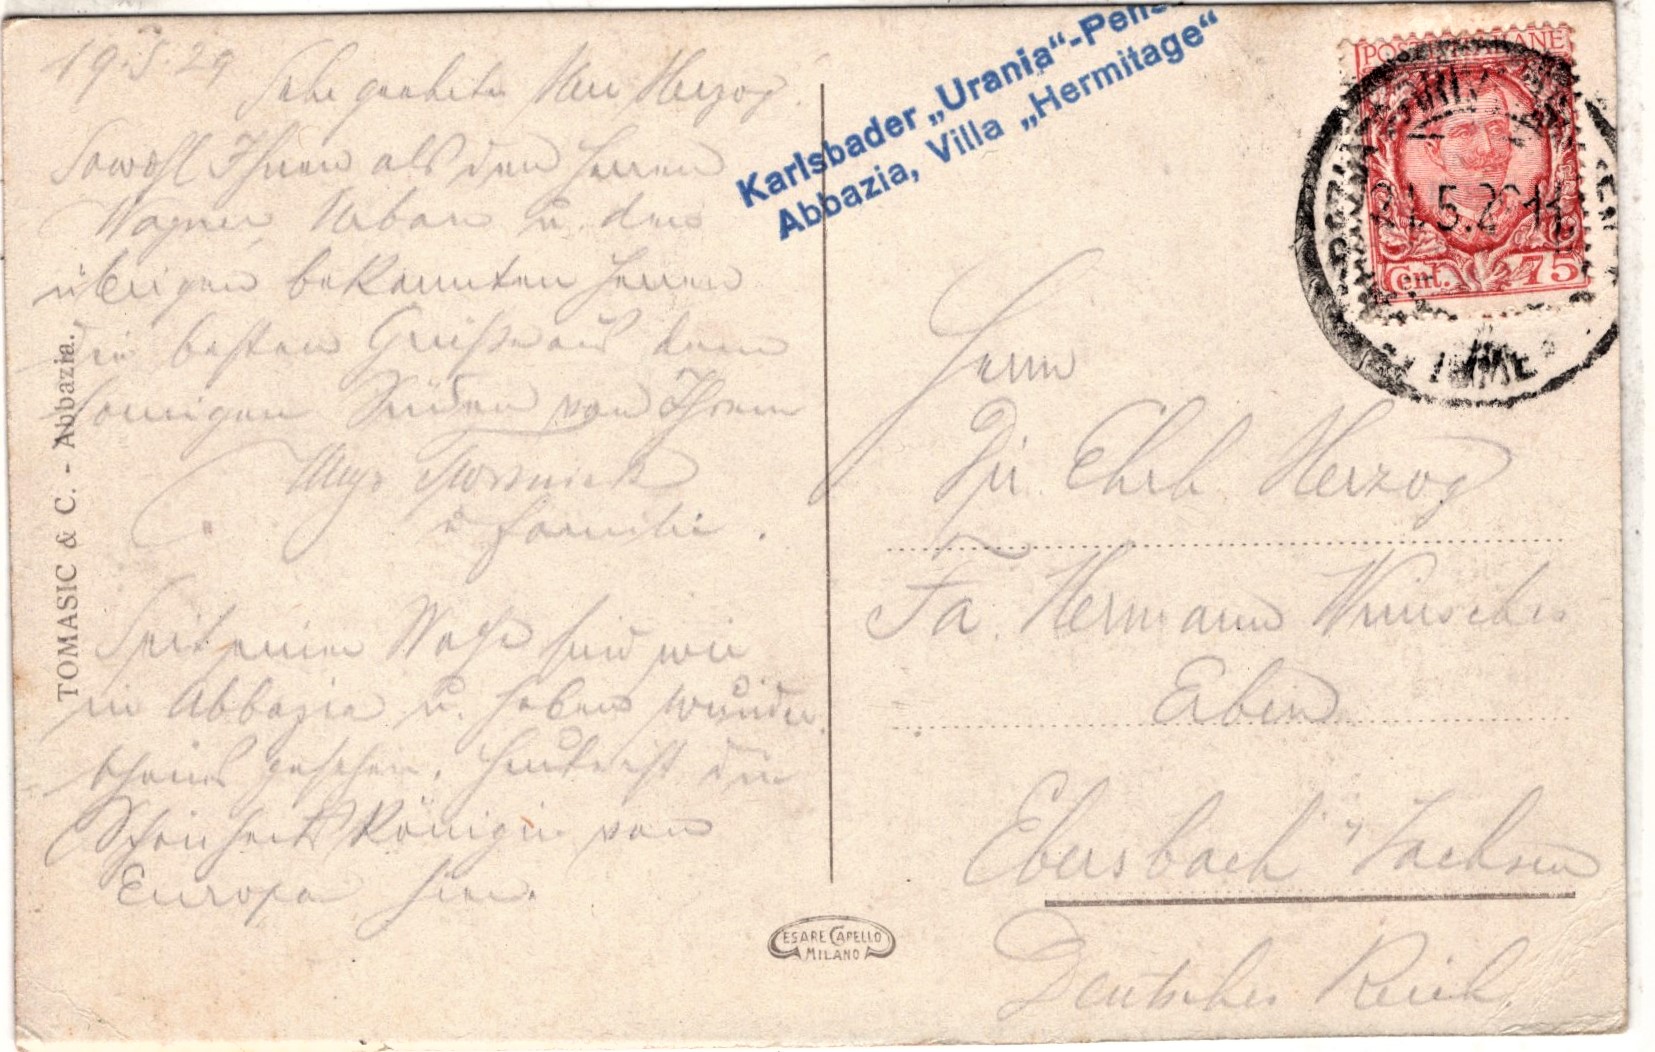 19.5.29
Sehr geehrter Herr Herzog!
Sowohl Ihnen als den Herren
Wagner, Urban u. den
übrigen bekannten Herren
die besten Grüße aus dem
sonnigen Süden von Ihrem
u Familie.
Seit einer Woche sind wir
in Abbazia u. haben wunder
schönes gesehen. Heute ist die
Schönheits Königin von
Europa hier.
TOMASIC & C. - Abbazia.
Karlsbader „Urania“-Pens
Abbazia, Villa „Hermitage“
POSTE ITALIANE
Cent. 75
21.5.29 11
FIUME
Herrn
Dir. Ehrh Herzog
Fa. Hermann Wünsches
Erben
Ebersbach i/ Sachsen
Deutsches Reich.
CESARE CAPELLO
MILANO